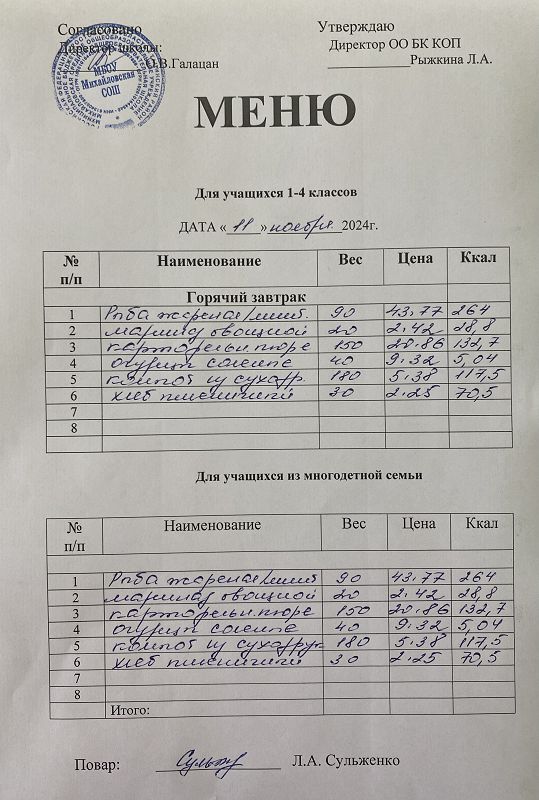 Согласовано Утверждаю
Директор школы: Директор ОО БК КОП
О.В.Галацан Рыжкина Л.А.
МБОУ
Михайловская
СОШ
МЕНЮ
Для учащихся 1-4 классов
ДАТА « 11 » ноября 2024г.
№ п/п Наименование Вес Цена Ккал
Горячий завтрак
1 Рыба жареная/минт. 90 43.77 264
2 маринад овощной 20 2.42 28,8
3 картофельн. пюре 150 20.86 132,7
4 огурцы соленые 40 9.32 5,04
5 компот из сухофр. 180 5.38 117,5
6 хлеб пшеничный 30 2.25 70,5
7
8
Для учащихся из многодетной семьи
№ п/п Наименование Вес Цена Ккал
1 Рыба жареная/минт 90 43.77 264
2 маринад овощной 20 2.42 28,8
3 картофельн. пюре 150 20.86 132,7
4 огурцы соленые 40 9.32 5,04
5 компот из сухофрук 180 5.38 117,5
6 хлеб пшеничный 30 2.25 70,5
7
8
Итого:
Повар: Л.А. Сульженко